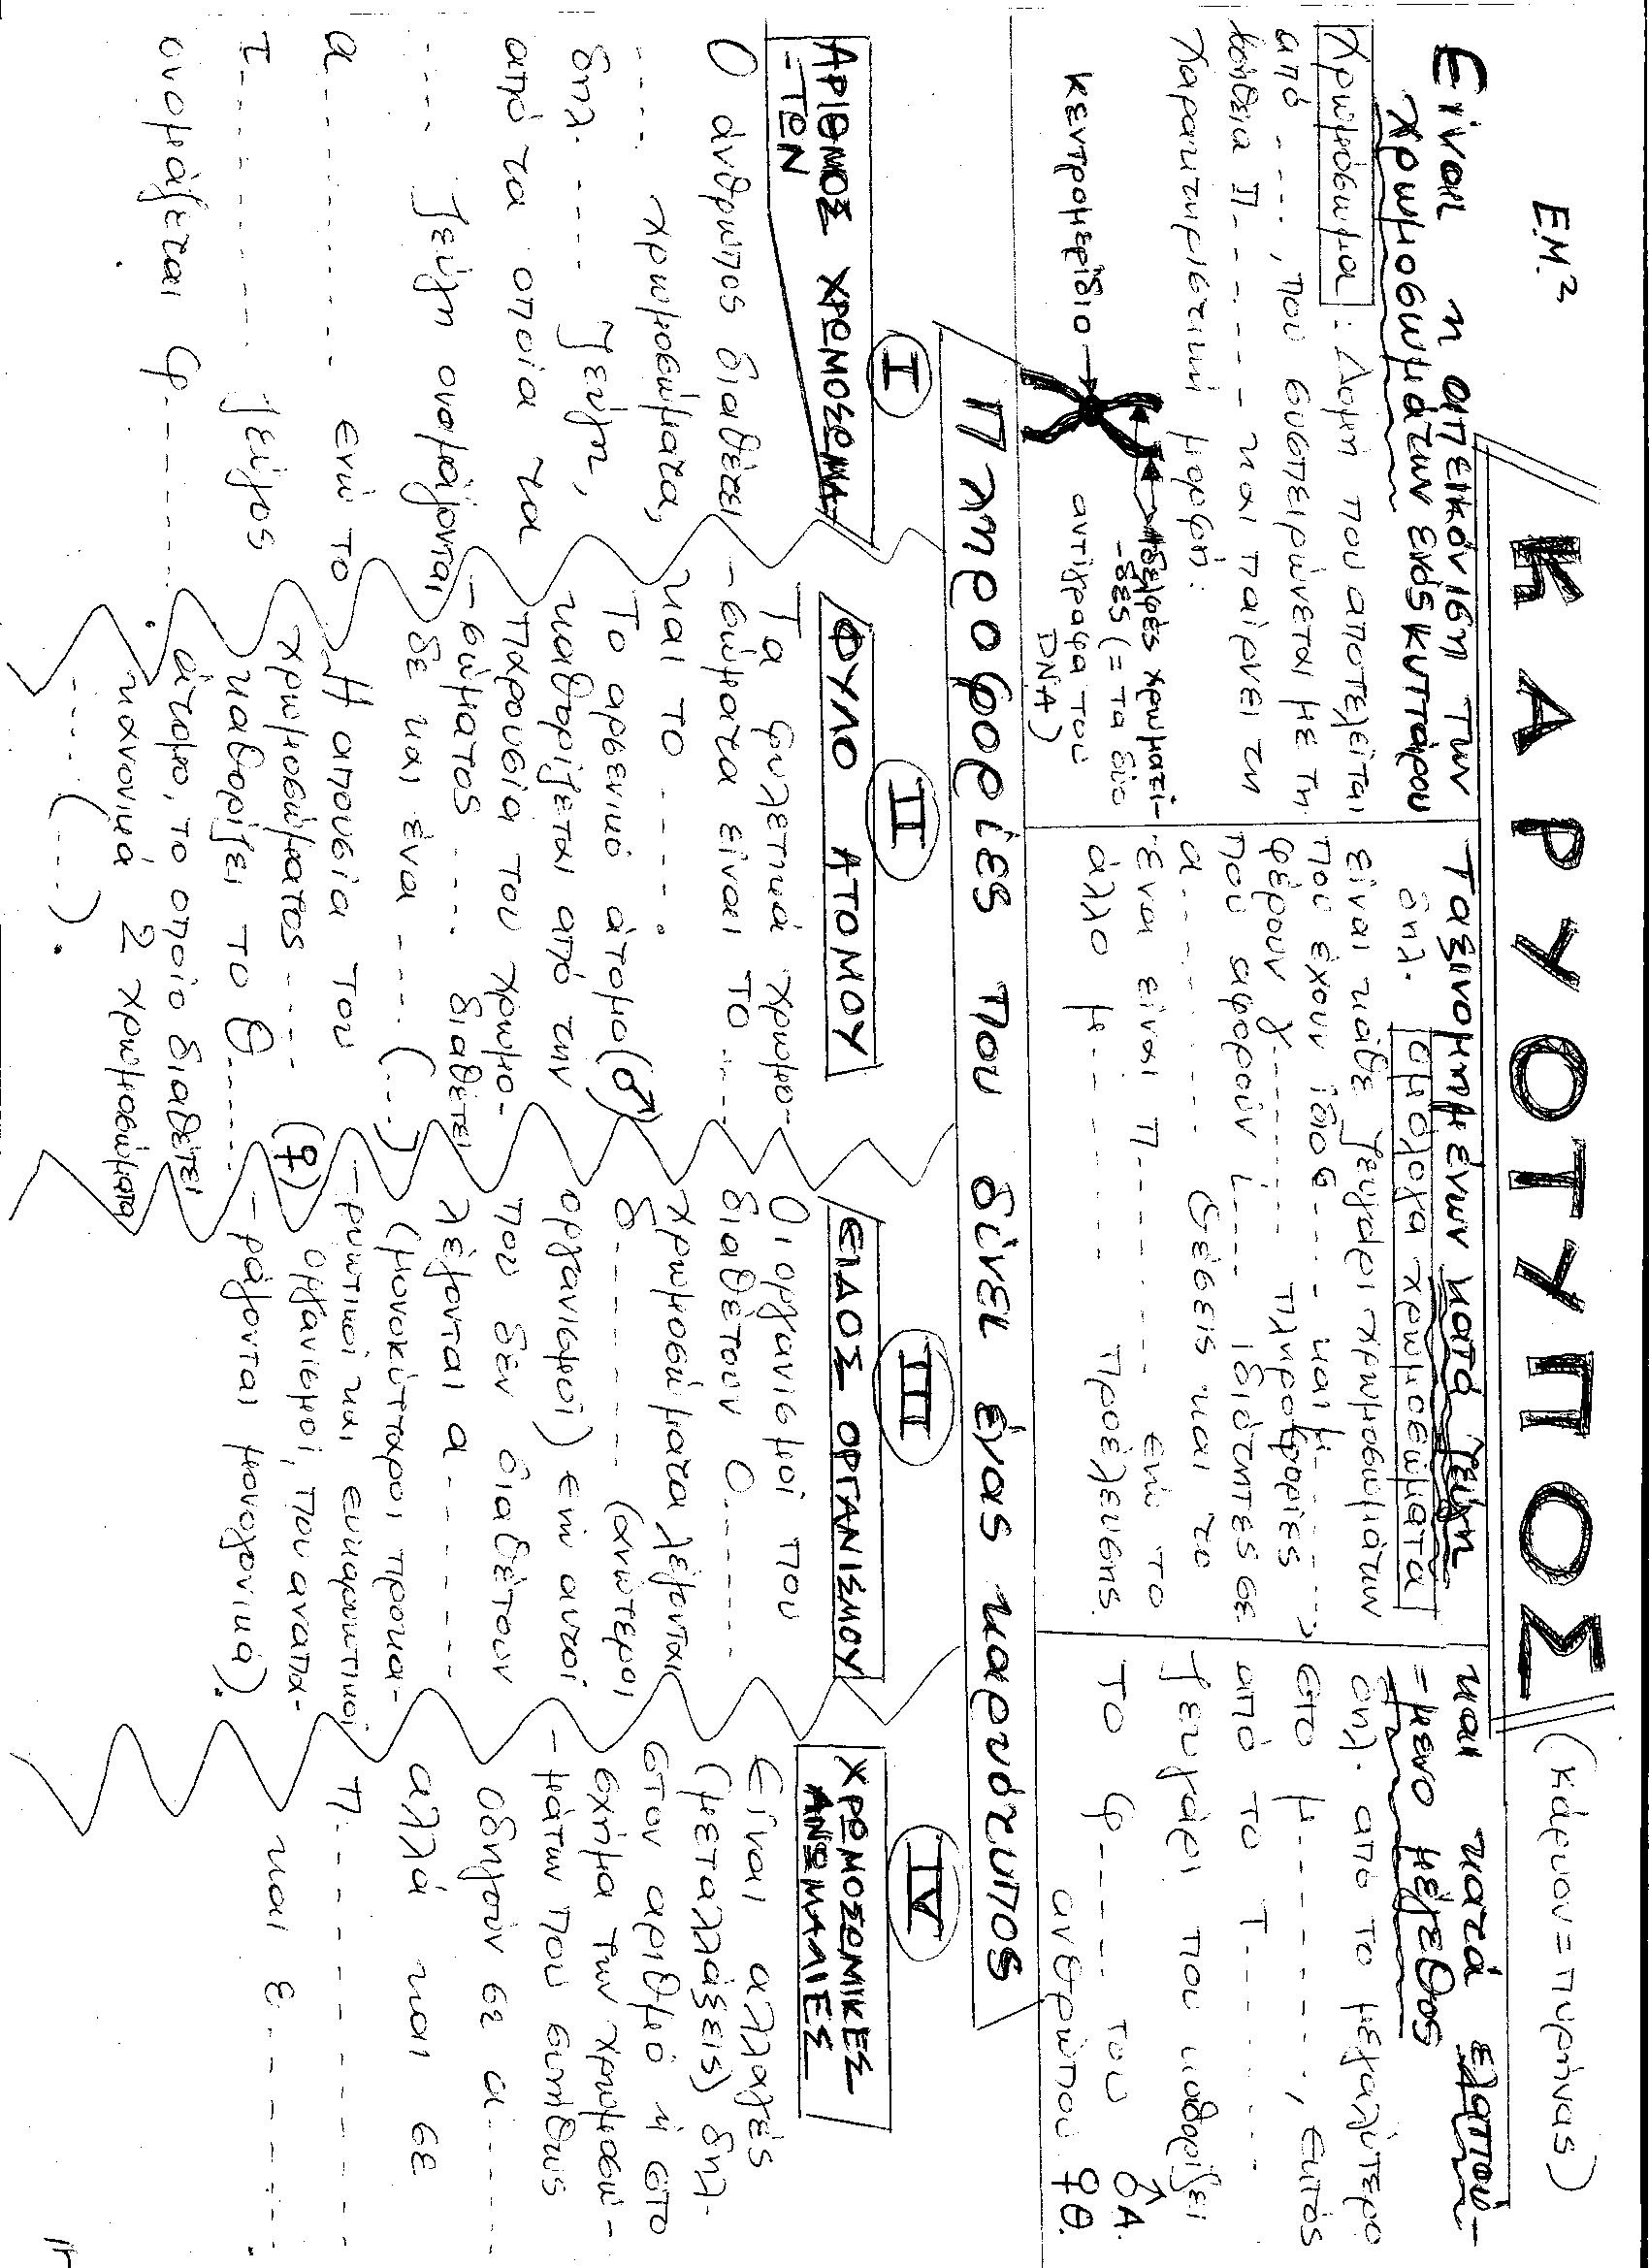 ΕΜ.2
ΚΑΡΥΟΤΥΠΟΣ (κάρυον=πυρήνας)
Είναι η απεικόνιση των
χρωμοσωμάτων ενός κυττάρου
Χρωμόσωμα : Δομή που αποτελείται
από ...., που συσπειρώνεται με τη
βοήθεια Π...... και παίρνει τη
χαρακτηριστική μορφή:
κεντρομερίδιο
αδελφές χρωματί-
-δες (= τα δύο
αντίγραφα του
DNA)
Ταξινομημένων κατά ζεύγη
δηλ. ομόλογα χρωμοσώματα
είναι κάθε ζευγάρι χρωμοσωμάτων
που έχουν ίδιο σ.... και μ.......
φέρουν γ....... πληροφορίες
που αφορούν ί.... ιδιότητες σε
α........ θέσεις και το
ένα είναι π...... ενώ το
άλλο μ........ προέλευσης.
και κατά ελαττού-
=μενο μέγεθος
δηλ. από το μεγαλύτερο
στο μ......., εκτός
από το τ.......
ζευγάρι που καθορίζει
το φ..... του ♂Α.
ανθρώπου ♀Θ.
Πληροφορίες που δίνει ένας καρυότυπος
Ι
ΑΡΙΘΜΟΣ ΧΡΩΜΟΣΩΜΑ-
-ΤΩΝ
Ο άνθρωπος διαθέτει
.... χρωμοσώματα,
δηλ. .... ζεύγη,
από τα οποία τα
.... ζεύγη ονομάζονται
α........ ενώ το
τ......... ζεύγος
ονομάζεται φ.........
ΙΙ
ΦΥΛΟ ΑΤΟΜΟΥ
Τα φυλετικά χρωμο-
-σώματα είναι το ....
και το .....
Το αρσενικό άτομο (♂)
καθορίζεται από την
παρουσία του χρωμο-
-σώματος .... διαθέτει
δε και ένα .... (...)
Η απουσία του
χρωμοσώματος .... (♀)
καθορίζει το θ.......
άτομο, το οποίο διαθέτει
κανονικά 2 χρωμοσώματα
.... (...).
ΙΙΙ
ΕΙΔΟΣ ΟΡΓΑΝΙΣΜΟΥ
Οι οργανισμοί που
διαθέτουν ο.......
χρωμοσώματα λέγονται
δ....... (ανώτεροι
οργανισμοί) ενώ αυτοί
που δεν διαθέτουν
λέγονται α.......
(μονοκύτταροι προκα-
-ρυωτικοί και ευκαρυωτικοί
οργανισμοί, που αναπα-
-ράγονται μονογονικά).
ΙV
ΧΡΩΜΟΣΩΜΙΚΕΣ
ΑΝΩΜΑΛΙΕΣ
Είναι αλλαγές
(μεταλλάξεις) δηλ.
στον αριθμό ή στο
σχήμα των χρωμοσω-
-μάτων που συνήθως
οδηγούν σε α......
αλλά και σε
π.........
και ε.........